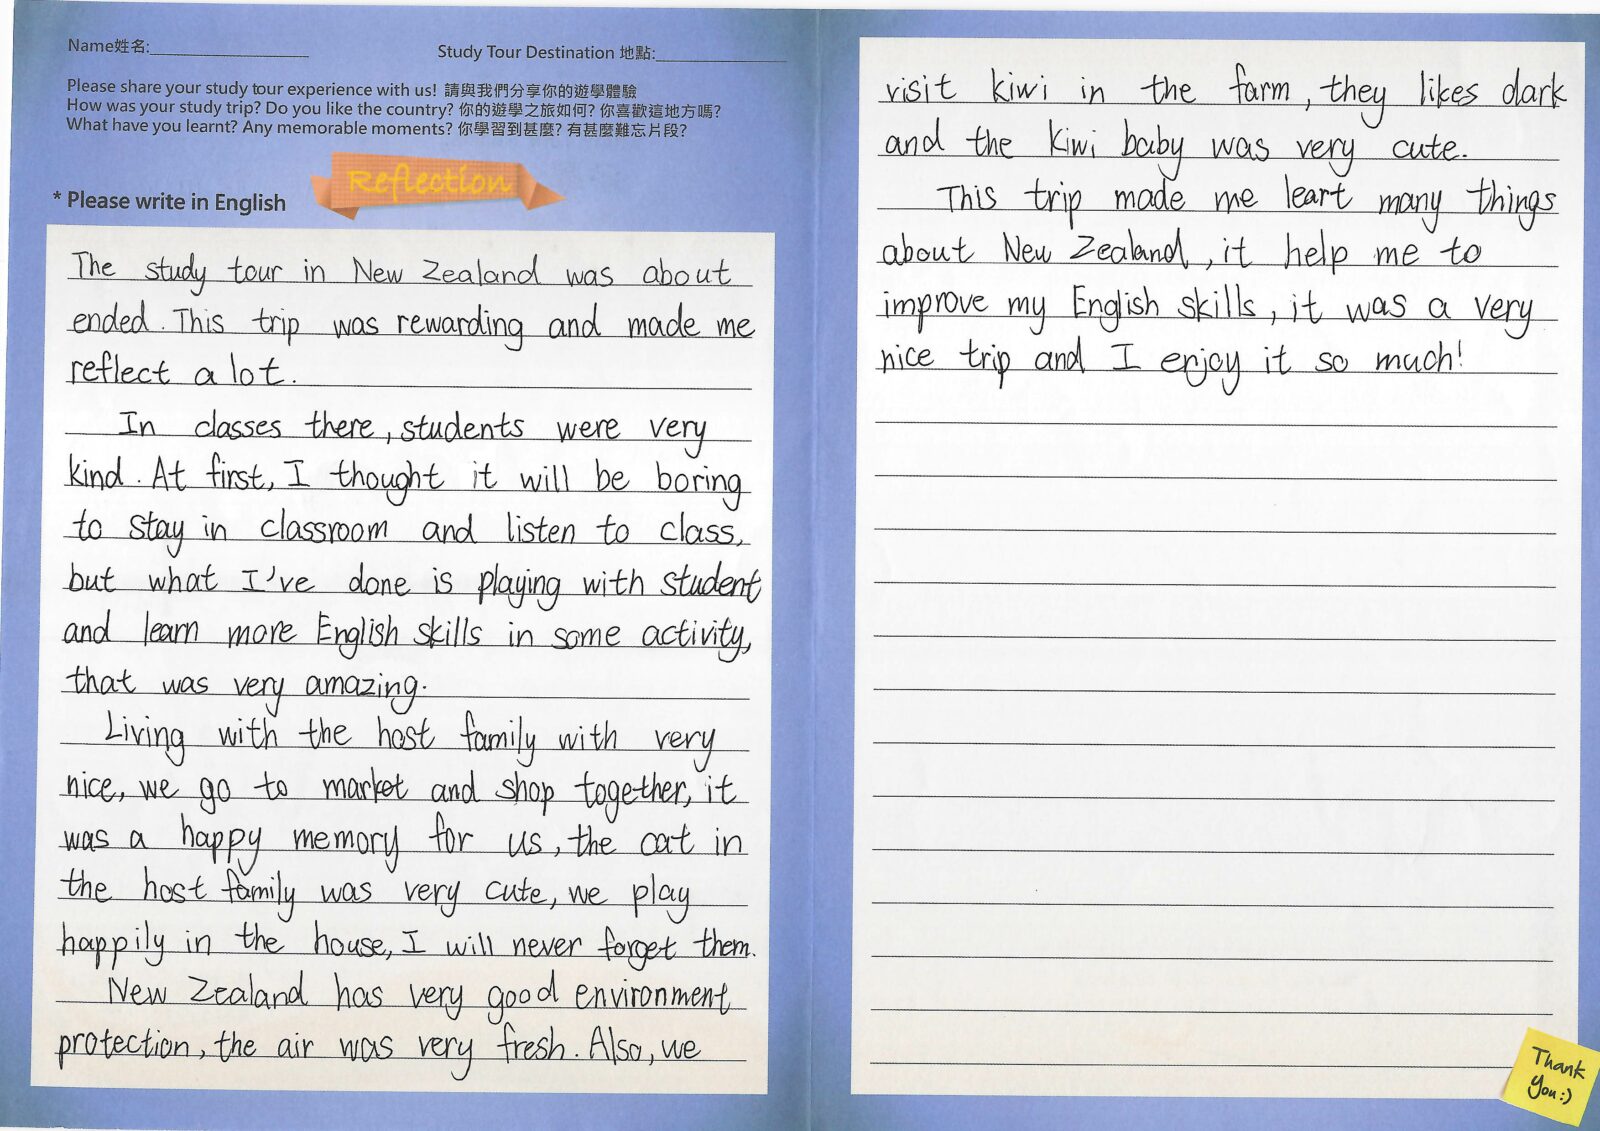 Name姓名:
Study Tour Destination 地點:
Please share your study tour experience with us! 請與我們分享你的遊學體驗
How was your study trip? Do you like the country? 你的遊學之旅如何? 你喜歡這地方嗎?
What have you learnt? Any memorable moments? 你學習到甚麼? 有甚麼難忘片段?
Reflection
* Please write in English
The study tour in New Zealand was about
ended. This trip was rewarding and made me
reflect a lot.
In classes there, students were very
kind. At first, I thought it will be boring
to stay in classroom and listen to class,
but what I've done is playing with student
and learn more English skills in some activity,
that was very amazing.
Living with the host family with very
nice, we go to market and shop together, it
was a happy memory for us, the cat in
the host family was very cute, we play
happily in the house, I will never forget them.
New Zealand has very good environment
protection, the air was very fresh. Also, we
visit kiwi in the farm, they likes dark
and the kiwi baby was very cute.
This trip made me leart many things
about New Zealand, it help me to
improve my English skills, it was a very
nice trip and I enjoy it so much!
Thank
you:)